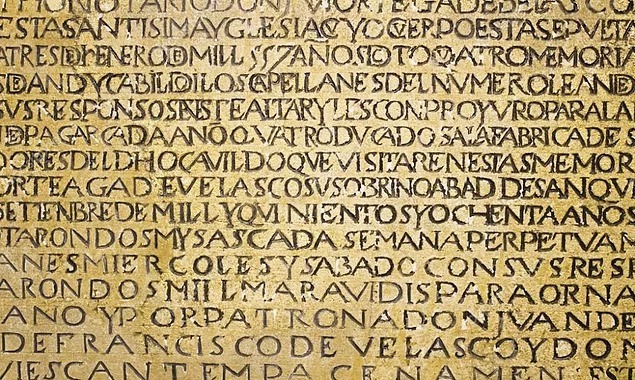 THONOTARIODONJVORTEGADEBELASCO
ESTASANTISIMAYGLESIACVYOCVERPOESTASEPVLTA
ATRESDENERODMILL 552ANOSDOTOQATROMEMORIA
DEANDYCABILDDLOSCAPELLANESDELNVMEROLEANDE
SVSRESPONSOSNSTEALTARYLESCONPROYVROPARALA
DPAGARCADAAÑOQVATRODVCADOSALAFABRICADES
DORESDELDHOCAVILDOQVEVISITARENESTASMEMOR
ORTEAGADEVELASCOSVSOBRINOABADDESANQVI
SETIENBREDEMILLYQVINIENTOSYOCHENTAANOS
TARONDOSMYSASCADASEMANAPERPETVAM
ANESMIERCOLESYSABADOCONSVSRESP
ARONDOSMILLMARAVIDISPARAORNA
ANOYPORPATRONADONJVANDE
DEFRANCISCODEVELASCOYDON
VIESCANTEMPACENAMENEST